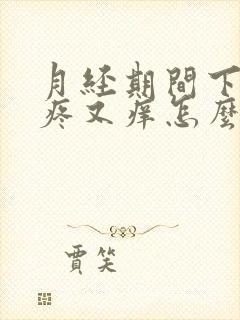 月经期間下
疼又痒怎麼
賈笑